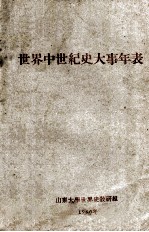 世界中世紀史大事年表
山東大學世界史教研組